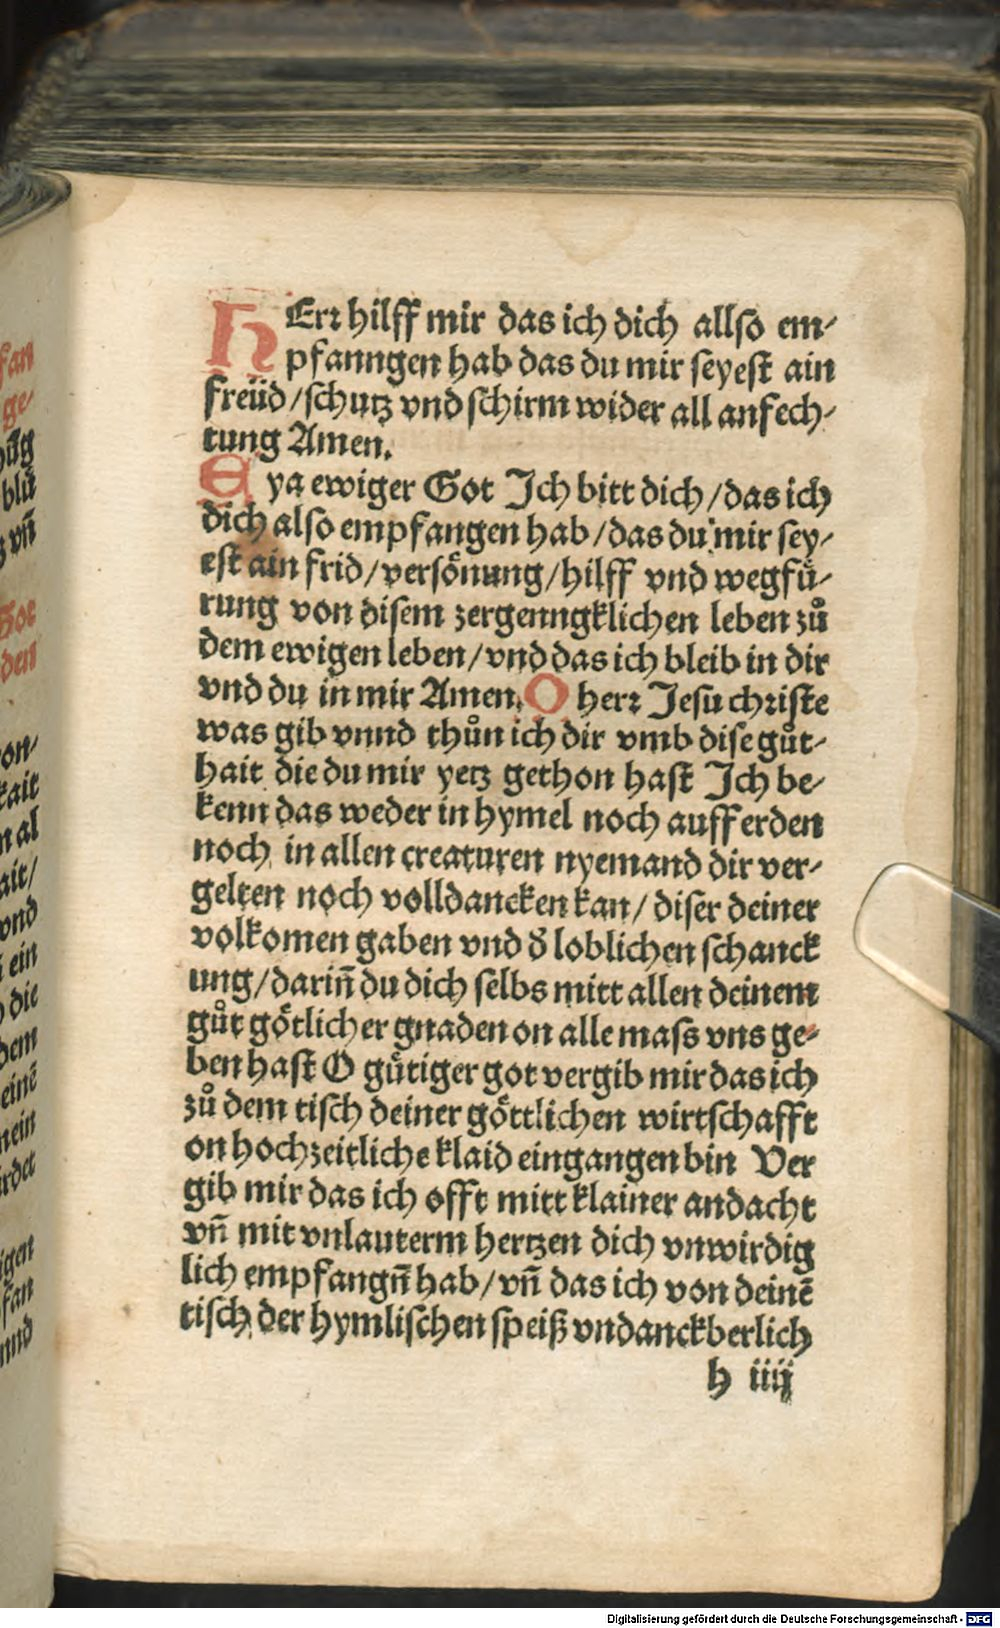 HErr hilff mir das ich dich allso em-
pfanngen hab das du mir seyest ain
freüd/schutz vnd schirm wider all anfech-
tung Amen.
Eya ewiger Got Ich bitt dich/das ich
dich also empfangen hab/das du mir sey-
est ain frid/versönung/hilff vnd wegfü-
rung von disem zergenngklichen leben zů
dem ewigen leben/vnd das ich bleib in dir
vnd du in mir Amen. O herr Jesu christe
was gib vnnd thůn ich dir vmb dise gůt-
hait die du mir yetz gethon hast Ich be-
kenn das weder in hymel noch auff erden
noch in allen creaturen nyemand dir ver-
gelten noch volldancken kan/ diser deiner
volkomen gaben vnd d̕ loblichen schanck
ung/darin̄ du dich selbs mitt allen deinem
gůt götlicher gnaden on alle mass vns ge-
ben hast O gůtiger got vergib mir das ich
zů dem tisch deiner göttlichen wirtschafft
on hochzeitliche klaid eingangen bin Ver
gib mir das ich offt mitt klainer andacht
vn̄ mit vnlauterm hertzen dich vnwirdig
lich empfangn̄ hab/vn̄ das ich von deinē
tisch der hymlischen speiß vndanckberlich
h iiij
fan
ge-
blů
vn̄
Got
den
on-
kait
n al
ait/
vnd
ein
die
dem
einē
mein
irdet
igen
fan
nnd
Digitalisierung gefördert durch die Deutsche Forschungsgemeinschaft - DFG